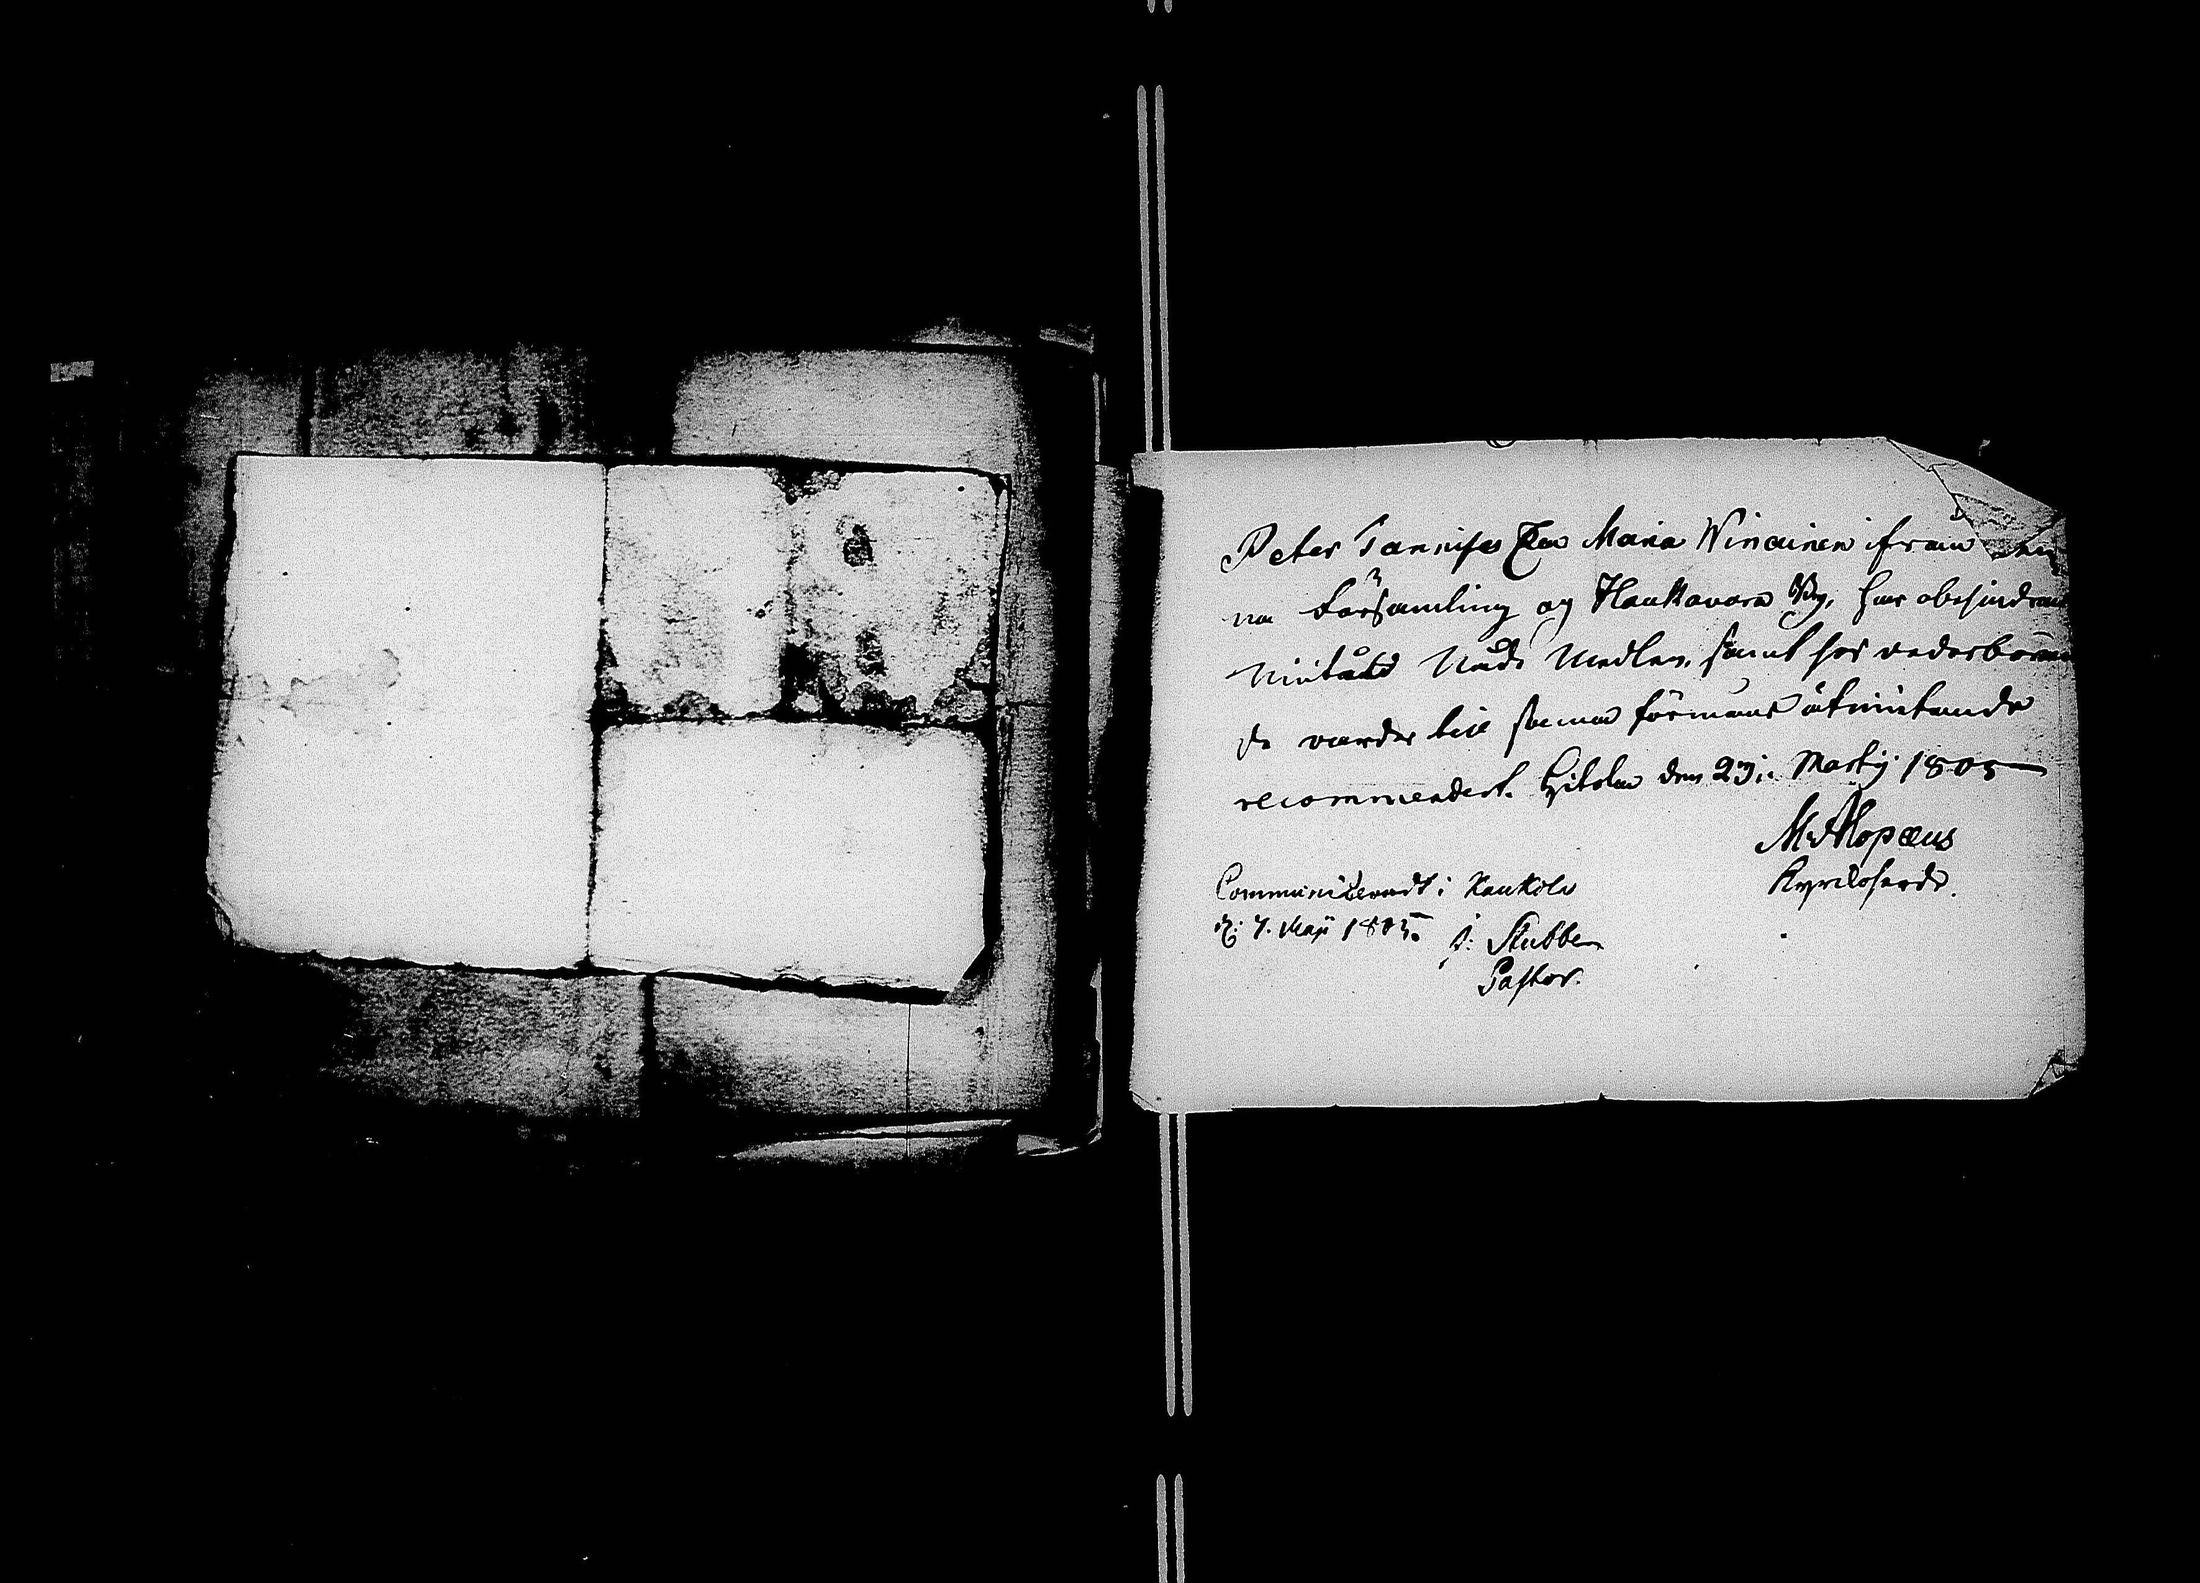 Peter Tannises Eka Maria Winainen ifrån den
na Församling og Haukavara By, har obehindrad
niutåtd Nåde Medlen, samt hos vederbörran
de varder till samma förmåns åtniutande
recommenderd. Hitola den 29: Martij 1805
M. Alopæus
Kyrkoherde.
Communiceradt i Kaukola
d: 7. Maji 1805. J: Stubbe
Pastor.